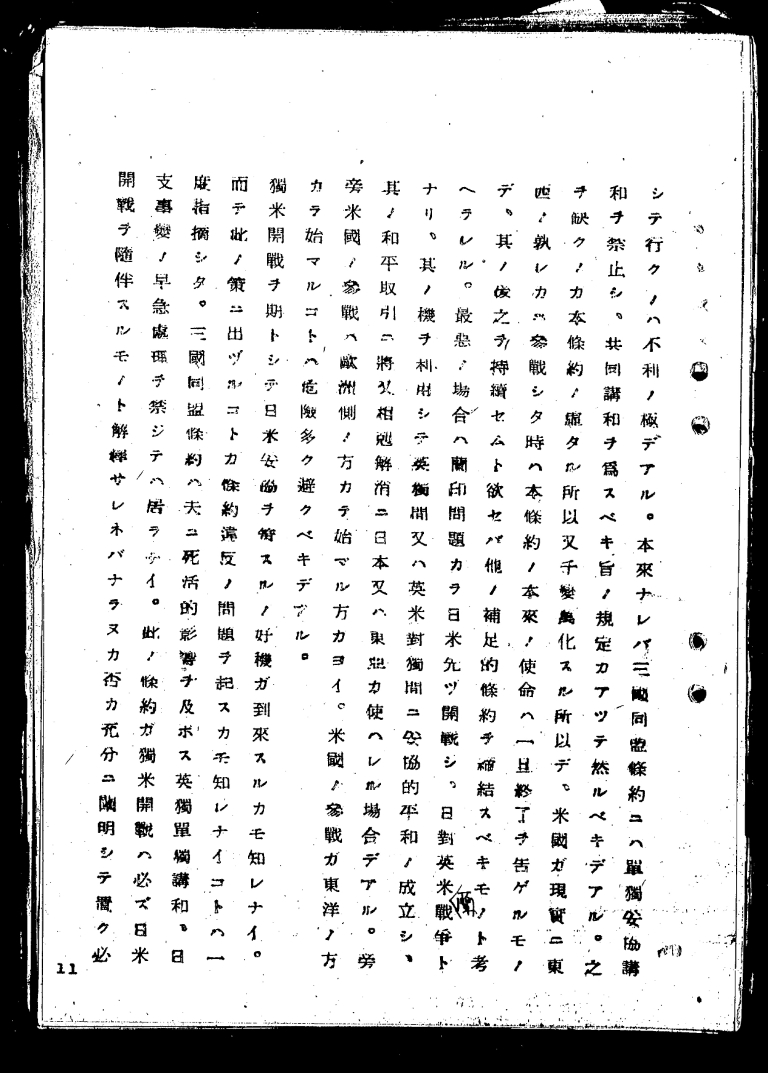 シテ行クノハ不利ノ極デアル。本來ナレバ三國同盟條約ニハ單獨妥協講
和ヲ禁止シ、共同講和ヲ爲スベキ旨ノ規定カアツテ然ルベキデアル。之
ヲ缺クノカ本條約ノ虛タル所以又千變萬化スル所以デ、米國ガ現實ニ東
西ノ孰レカニ參戰シタ時ハ本條約ノ本來ノ使命ハ一旦終了ヲ告ゲルモノ
デ、其ノ後之ヲ持續セムト欲セバ他ノ補足的條約ヲ締結スベキモノト考
ヘラレル。最惡ノ場合ハ蘭印問題カラ日米先ヅ開戰シ、日對英米戰爭ト
ナリ。其ノ機ヲ利用シテ英獨間又ハ英米對獨間ニ妥協的平和ノ成立シ、
其ノ和平取引ニ將又相剋解消ニ日本又ハ東亞カ使ハレル場合デアル。旁
旁米國ノ參戰ハ歐洲側ノ方カラ始マル方カヨイ。米國ノ參戰ガ東洋ノ方
カラ始マルコトハ危險多ク避クベキデアル。
獨米開戰ヲ期トシテ日米妥協ヲ策スルノ好機ガ到來スルカモ知レナイ。
而テ此ノ策ニ出ヅルコトカ條約違反ノ問題ヲ起スカモ知レナイコトハ一
度指摘シタ。三國同盟條約ハ夫ニ死活的影響ヲ及ボス英獨單獨講和、日
支事變ノ早急處理ヲ禁ジテハ居ラナイ。此ノ條約ガ獨米開戰ハ必ズ日米
開戰ヲ隨伴スルモノト解釋サレネバナラヌカ否カ充分ニ闡明シテ置ク必
11